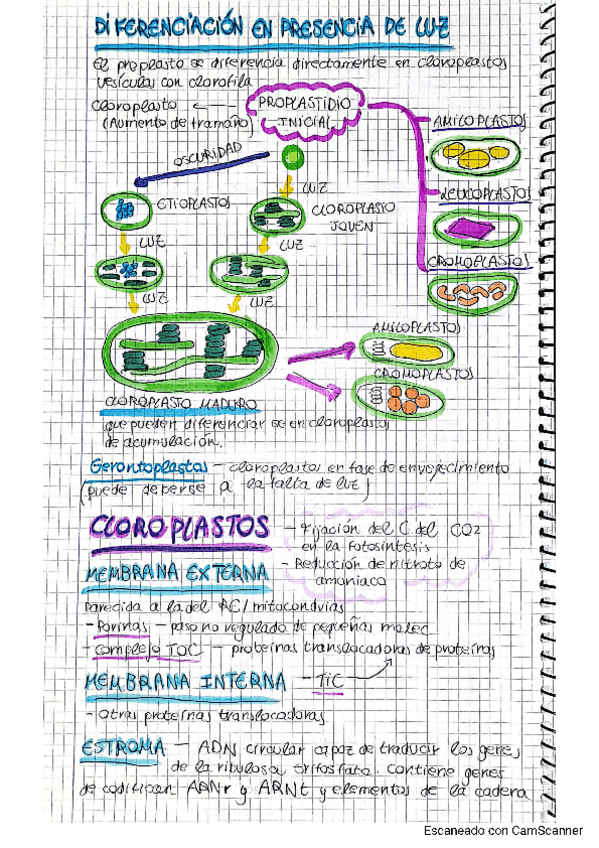 DIFERENCIACIÓN EN PRESENCIA DE LUZ
El proplasto se diferencia directamente en cloroplastos
vesículas con clorofila
Cloroplasto
(Aumento de tramaño)
PROPLASTIDIO
INICIAL
AMILOPLASTOS
OSCURIDAD
LUZ
LEUCOPLASTOS
ETIOPLASTOS
CLOROPLASTO
JOVEN
LUZ
LUZ
CROMOPLASTOS
LUZ
LUZ
AMILOPLASTOS
CROMOPLASTOS
CLOROPLASTO MADURO
que pueden diferenciarse en cloroplastos
de acumulación.
Gerontoplastos - cloroplastos en fase de envejecimiento
(puede deberse a la falta de luz)
CLOROPLASTOS
- Fijación del C del CO2
en la fotosíntesis
- Reducción de nitrato de
amoniaco
MEMBRANA EXTERNA
Parecida a la del RE/mitocondrias
- Porinas - paso no regulado de pequeñas molec
- Complejo TOC - proteínas translocadoras de proteínas
MEMBRANA INTERNA - TIC
- Otras proteínas translocadoras
ESTROMA - ADN circular capaz de traducir los genes
de la ribulosa trifosfato. Contiene genes
de codifican ARNr y ARNt y elementos de la cadena
Escaneado con CamScanner